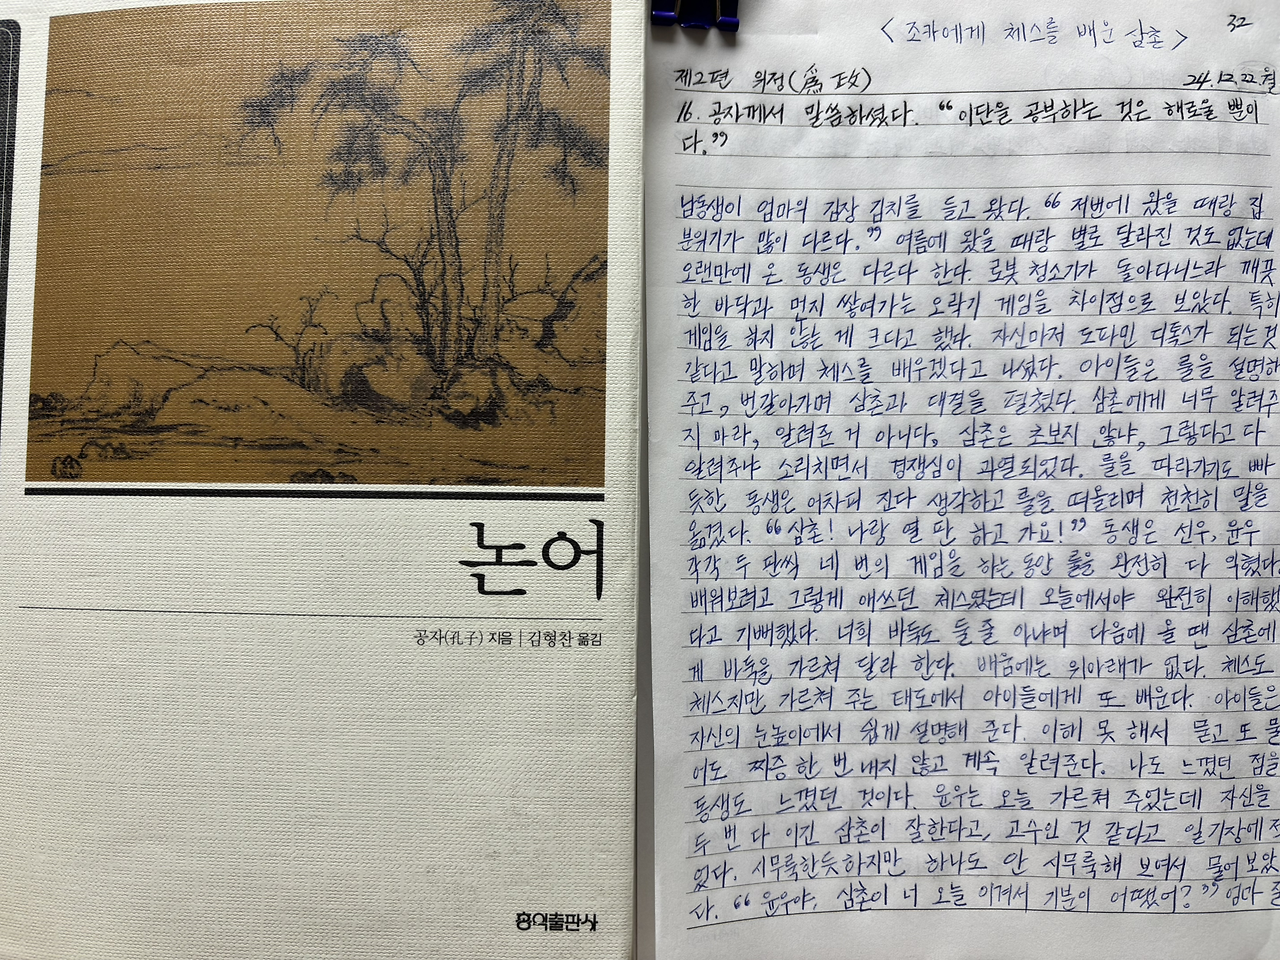 논어
공자(孔子) 지음 | 김형찬 옮김
홍익출판사
<조카에게 체스를 배운 삼촌>
32
제2편 위정(爲政) 24.12.22.월
16. 공자께서 말씀하셨다. “이단을 공부하는 것은 해로울 뿐이
다.”
남동생이 엄마의 김장 김치를 들고 왔다. “저번에 왔을 때랑 집
분위기가 많이 다르다.” 여름에 왔을 때랑 별로 달라진 것도 없는데
오랜만에 온 동생은 다르다 한다. 로봇 청소기가 돌아다니느라 깨끗
한 바닥과 먼지 쌓여가는 오락기 게임을 차이점으로 보았다. 특히
게임을 하지 않는 게 크다고 했다. 자신마저 도파민 디톡스가 되는것
같다고 말하며 체스를 배우겠다고 나섰다. 아이들은 룰을 설명해
주고, 번갈아가며 삼촌과 대결을 펼쳤다. 삼촌에게 너무 알려주
지 마라, 알려준 거 아니다, 삼촌은 초보지 않냐, 그렇다고 다
알려주냐 소리치면서 경쟁심이 과열되었다. 룰을 따라가기도 빠
듯한 동생은 어차피 진다 생각하고 룰을 떠올리며 천천히 말을
옮겼다. “삼촌! 나랑 열 판 하고 가요!” 동생은 선우, 윤우
각각 두 판씩 네 번의 게임을 하는 동안 룰을 완전히 다 익혔다.
배워보려고 그렇게 애쓰던 체스였는데 오늘에서야 완전히 이해했
다고 기뻐했다. 너희 바둑도 둘 줄 아냐며 다음에 올 땐 삼촌에
게 바둑을 가르쳐 달라 한다. 배움에는 위아래가 없다. 체스도
체스지만 가르쳐 주는 태도에서 아이들에게 또 배운다. 아이들은
자신의 눈높이에서 쉽게 설명해 준다. 이해 못 해서 묻고 또 물
어도 짜증 한 번 내지 않고 계속 알려준다. 나도 느꼈던 점을
동생도 느꼈던 것이다. 윤우는 오늘 가르쳐 주었는데 자신을
두 번 다 이긴 삼촌이 잘한다고, 고수인 것 같다고 일기장에 적
었다. 시무룩한듯하지만 하나도 안 시무룩해 보여서 물어보았
다. “윤우야, 삼촌이 너 오늘 이겨서 기분이 어땠어?” 엄다